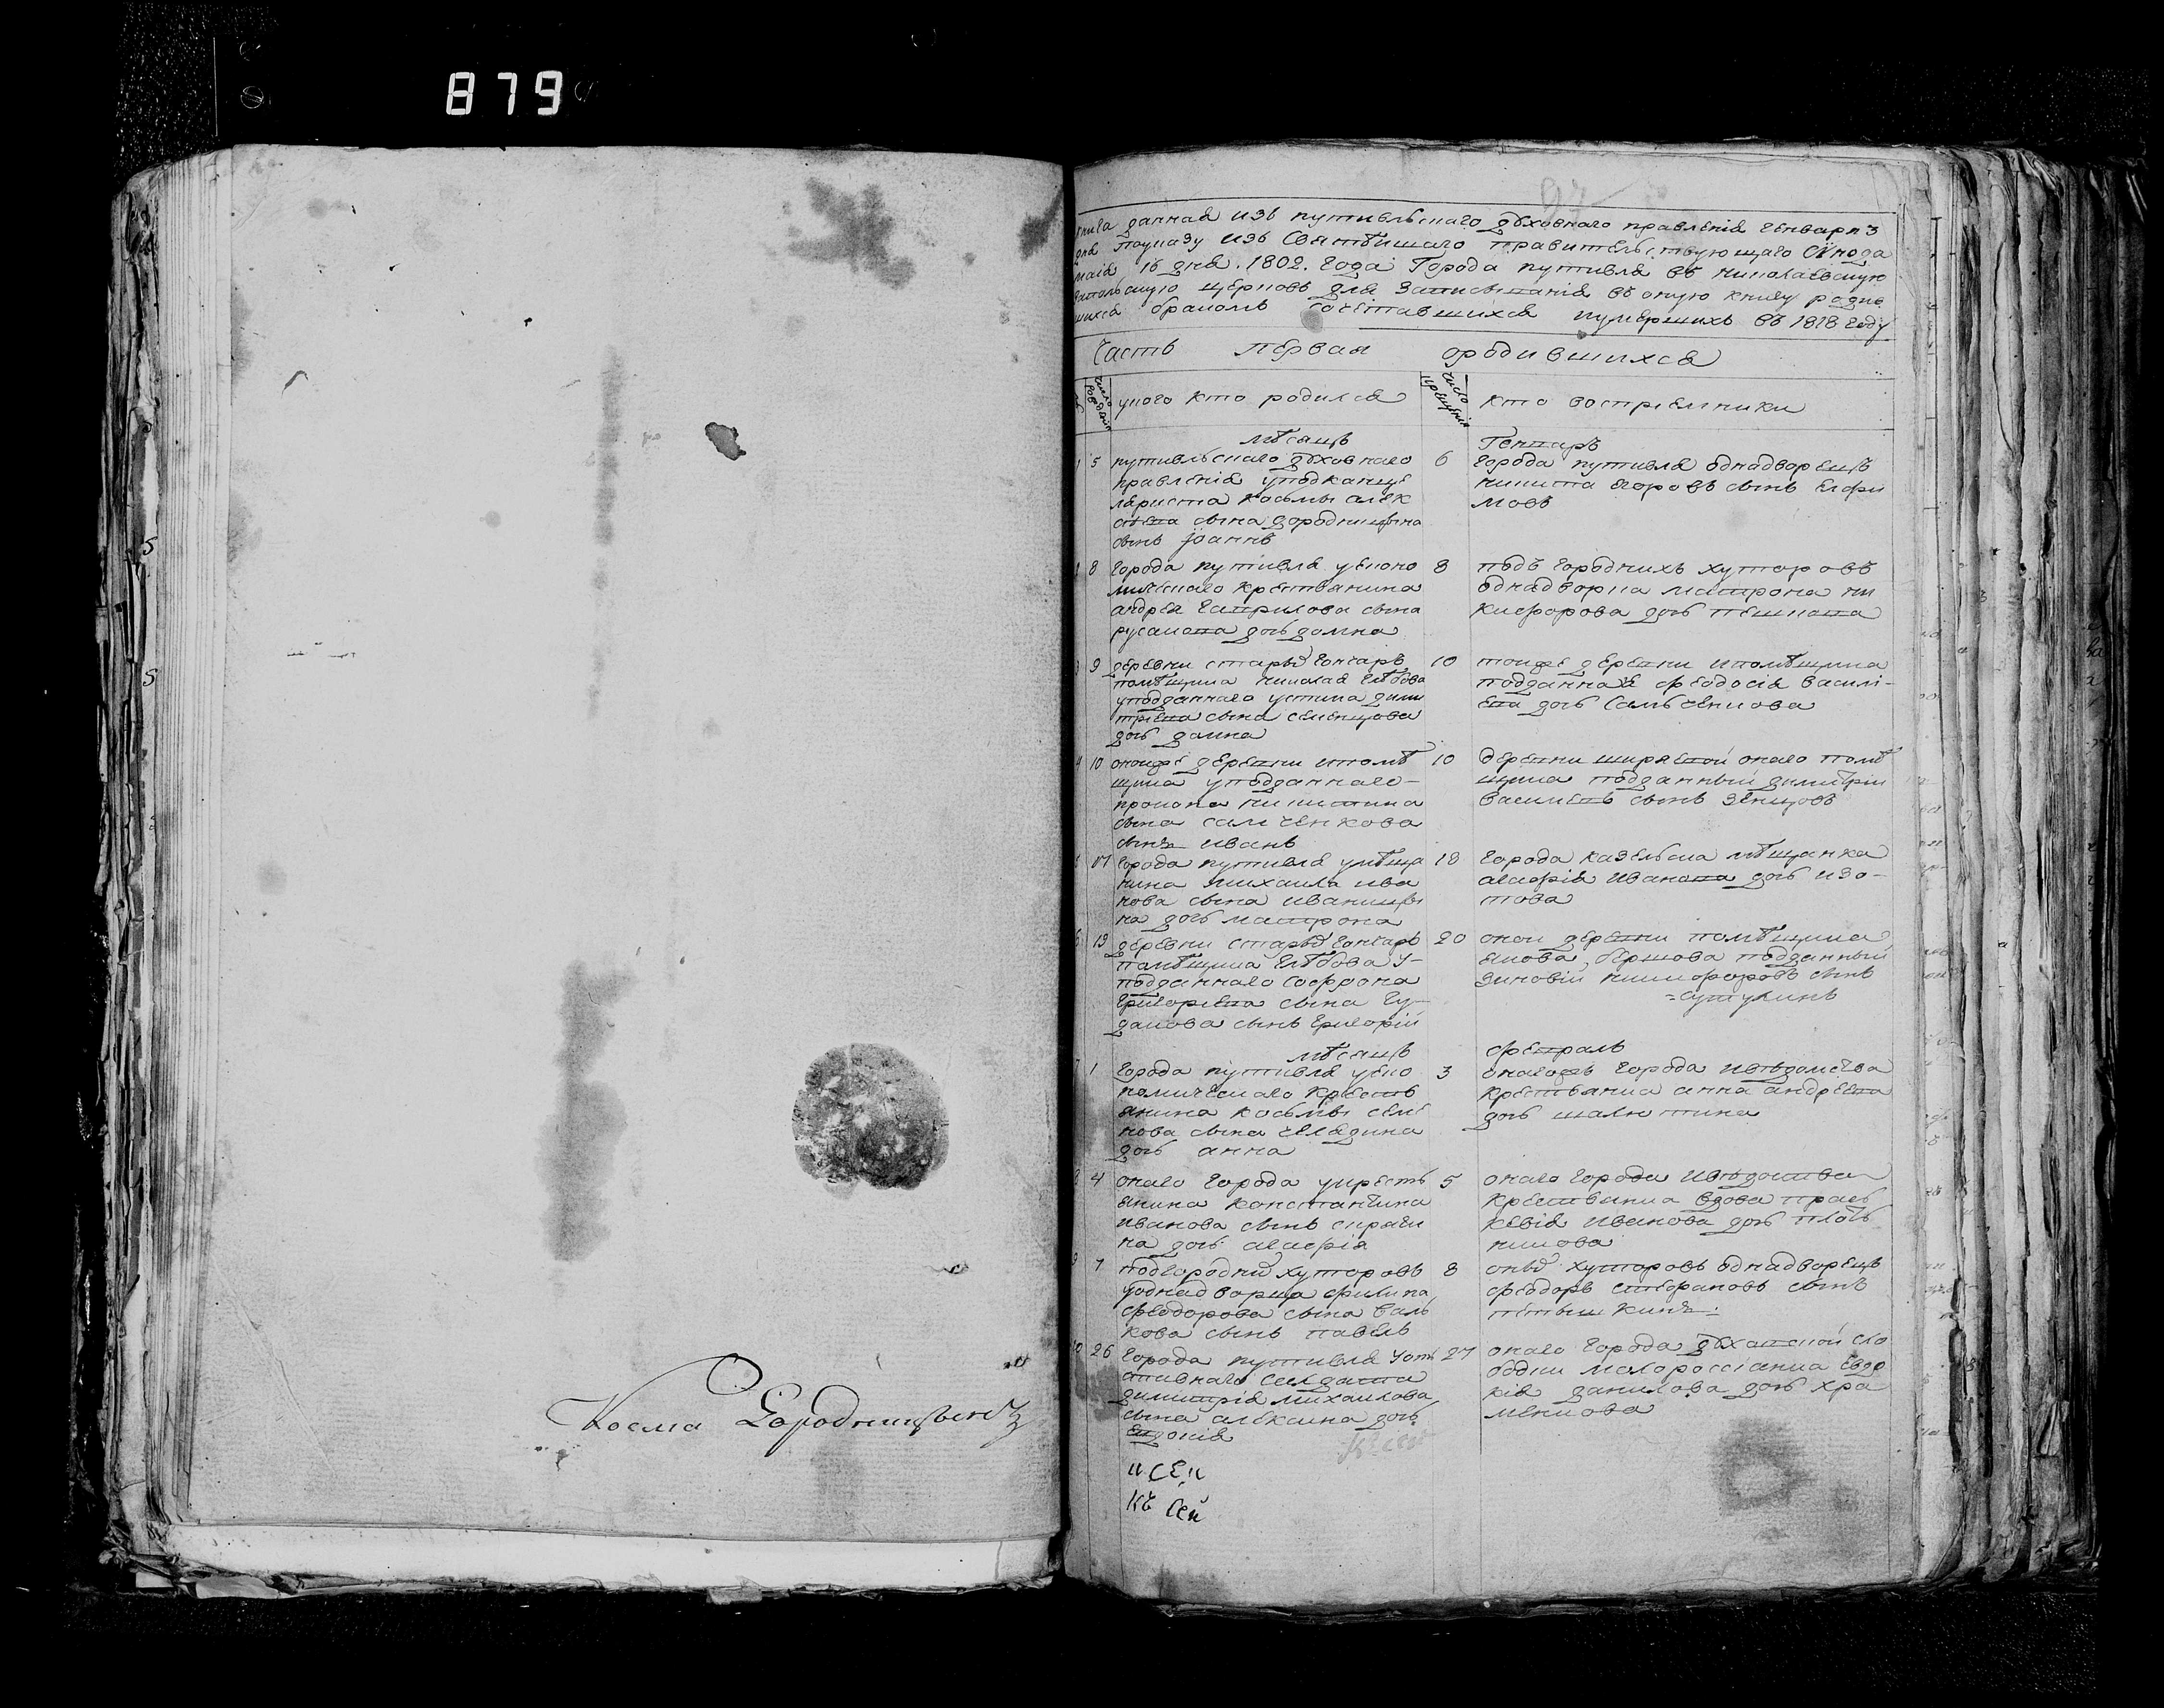 879
Косма Городницынъ
книга данная изъ путивльскаго духовнаго правленія генваря 3
дня поуказу изъ Святѣйшаго правительствующаго Сѵнода
маія 16 дня. 1802. года Города путивля въ николаевскую
церковь для записыванія въ оную книгу родив
шихся бракомъ сочетавшихся иумершихъ въ 1818 году
Часть первая ородившихся
число рожденія
укого кто родился
число крещенія
кто воспріемники
мѣсяцъ Генваръ
1 5 путивльскаго духовнаго
правленія уподканце
ляриста косьмы алек
сѣева сына городницына
сынъ іоаннъ
6 города путивля однадворецъ
никита егоровъ сынъ
мовъ
2 8 города путивля уеконо
мическаго крестьянина
андрея гаврилова сына
русанова дочь домна
8 подъ городнихъ хуторовъ
однадворка матрона ни
кифорова дочь
3 9 деревни гончаръ
помѣщика николая глѣбова
уподданнаго устина дими
тріева сына семенцова
дочь домна
10 тоижъ деревни ипомѣщика
подданная феодосія василі-
ева дочь самченкова
4 10 оноижъ деревни ипомѣ
щика уподданнаго-
прокопа никитина
сына самченкова
сынъ иванъ
10 деревни ширяевой онаго помѣ
щика подданный димитріи
василіевъ сынъ
5 17 города путивля умѣща
нина михаила ива
нова сына иваницы
на дочь матрона
18 города мѣщанка
агафія иванова дочь изо-
това
6 19 деревни гончаръ
помѣщика глѣбова у-
подданнаго софрона
григоріева сына гу-
данова сынъ григорій
20 онои деревни помѣщика
подданный
зиновіи никифоровъ сынъ
=сутулинъ
мѣсяцъ февраль
7 1 города путивля уеко
номическаго кресть
янина косьмы семе
нова сына челядина
дочь анна
3 онагожъ города ивѣдомства
крестьянка анна андреева
дочь шалютина
8 4 онаго города укресть
янина константина
иванова сынъ
на дочь агафія
5 онаго города ивѣдомства
крестьянка вдова прас
кевія иванова дочь плот
никова
9 7 подгородни хуторовъ
уоднадворца филипа
феодорова сына валь
кова сынъ павелъ
8 хуторовъ однадворецъ
феодоръ стефановъ сынъ
10 26 города путивля уотъ
ставнаго салдата
димитрія михаилова
сына алехина дочь
евдокія
27 онаго города духановской сло
бодки малороссіянка евдо
кія данилова дочь хра
менкова
и сеи
къ сеи